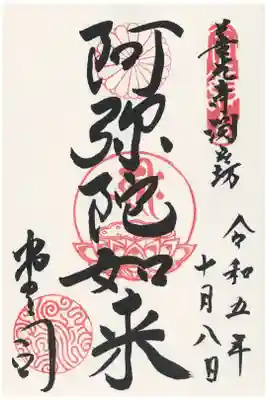 善光寺淵之坊
令和五年
十月八日
阿弥陀如来